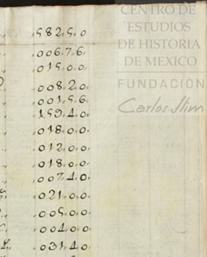 CENTRO DE
ESTUDIOS
DE HISTORIA
DE MEXICO
FUNDACIÓN
Carlos Slim
582.5.0
006.7.6
015.0.0
008.2.0
001.5.6
159.4.0
018.0.0
012.0.0
018.0.0
007.4.0
021.0.0
005.0.0
004.0.0
031.4.0